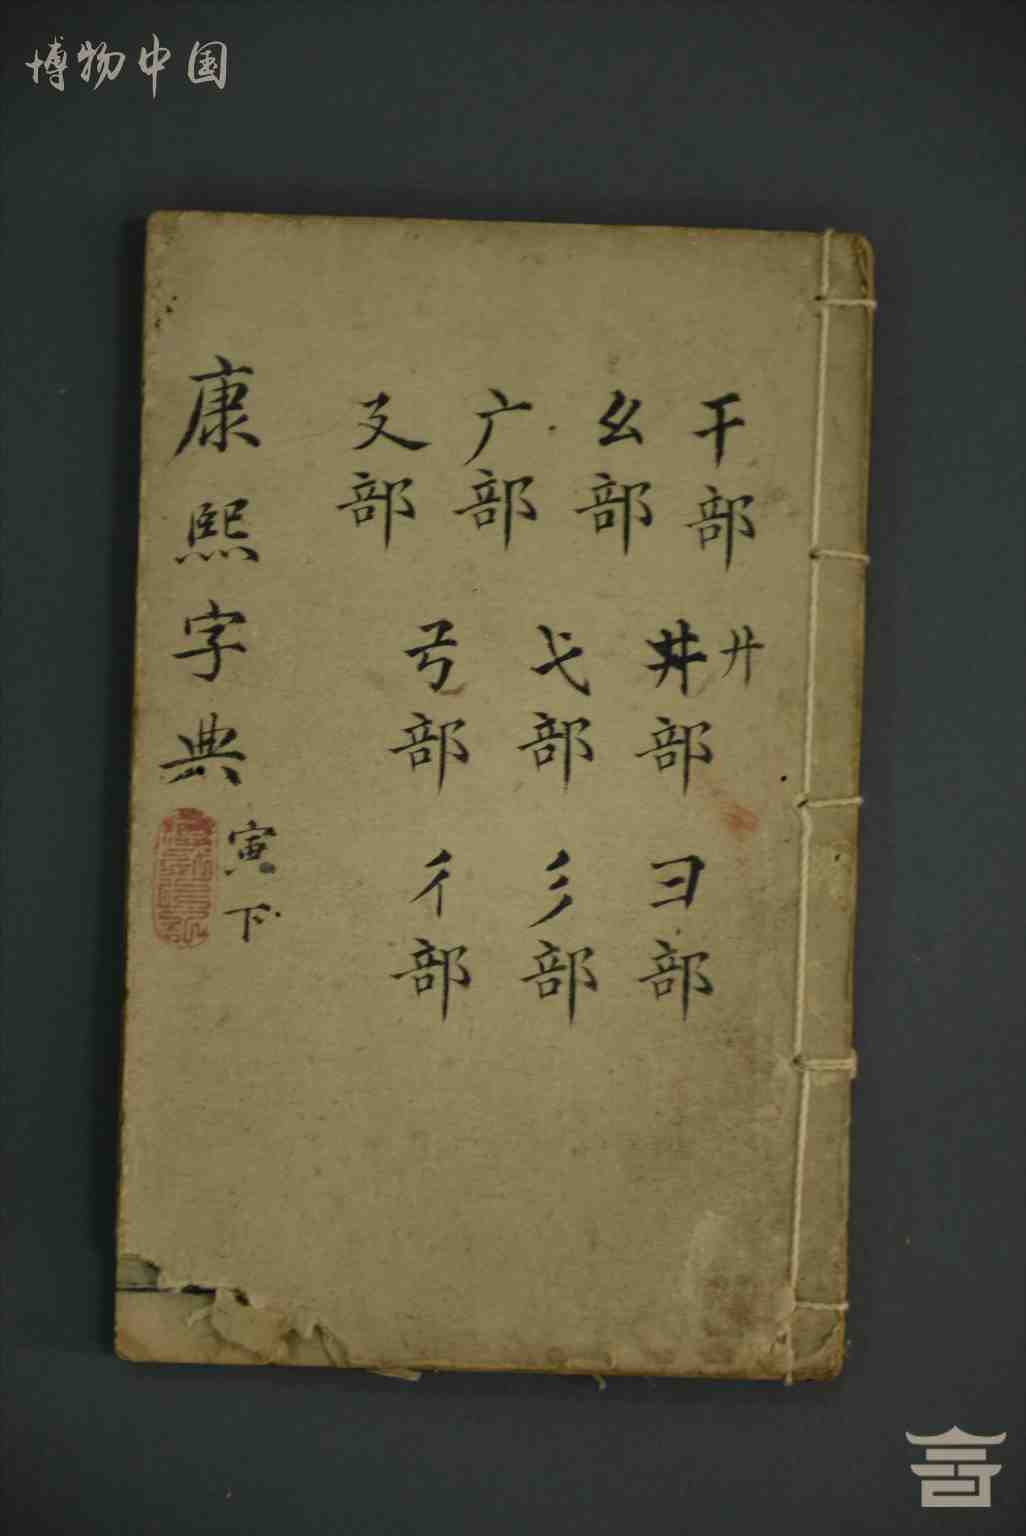 博物中国
干部
幺部
广部
廴部
廾
井部
弋部
弓部
彐部
彡部
彳部
康熙字典
寅下